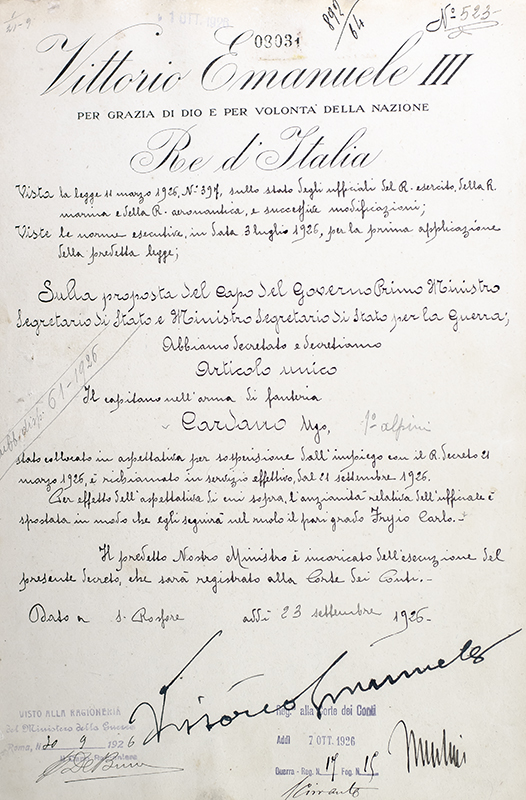 1 OTT. 1926
892/64
Nº 523
03031
Vittorio Emanuele III
PER GRAZIA DI DIO E PER VOLONTA' DELLA NAZIONE
Re d'Italia
Vista la legge 11 marzo 1926, Nº 397, sullo stato degli ufficiali del R. esercito, della R.
marina e della R. aeronautica, e successive modificazioni;
Viste le norme esecutive, in data 3 luglio 1926, per la prima applicazione
della predetta legge;
Sulla proposta del Capo del Governo Primo Ministro
Segretario di Stato e Ministro Segretario di Stato per la Guerra;
Abbiamo decretato e decretiamo
Articolo unico
Il capitano nell'arma di fanteria
Cardano Ugo, 1º alpini
stato collocato in aspettativa per sospensione dall'impiego con il R. decreto 21
marzo 1926, è richiamato in servizio effettivo, dal 21 settembre 1926.
Per effetto dell'aspettativa di cui sopra, l'anzianità relativa dell'ufficiale è
spostata in modo che egli seguirà nel ruolo il pari grado Carlo. -
Il predetto Nostro Ministro è incaricato dell'esecuzione del
presente decreto, che sarà registrato alla Corte dei Conti. -
Dato a S. Rossore addì 23 settembre 1926.
61-1926
Vittorio Emanuele
VISTO ALLA RAGIONERIA
del Ministero della Guerra
Roma, li 30 9 1926
Reg. alla Corte dei Conti
Addì 7 OTT. 1926
Guerra - Reg. N. 17 Fog. N. 15